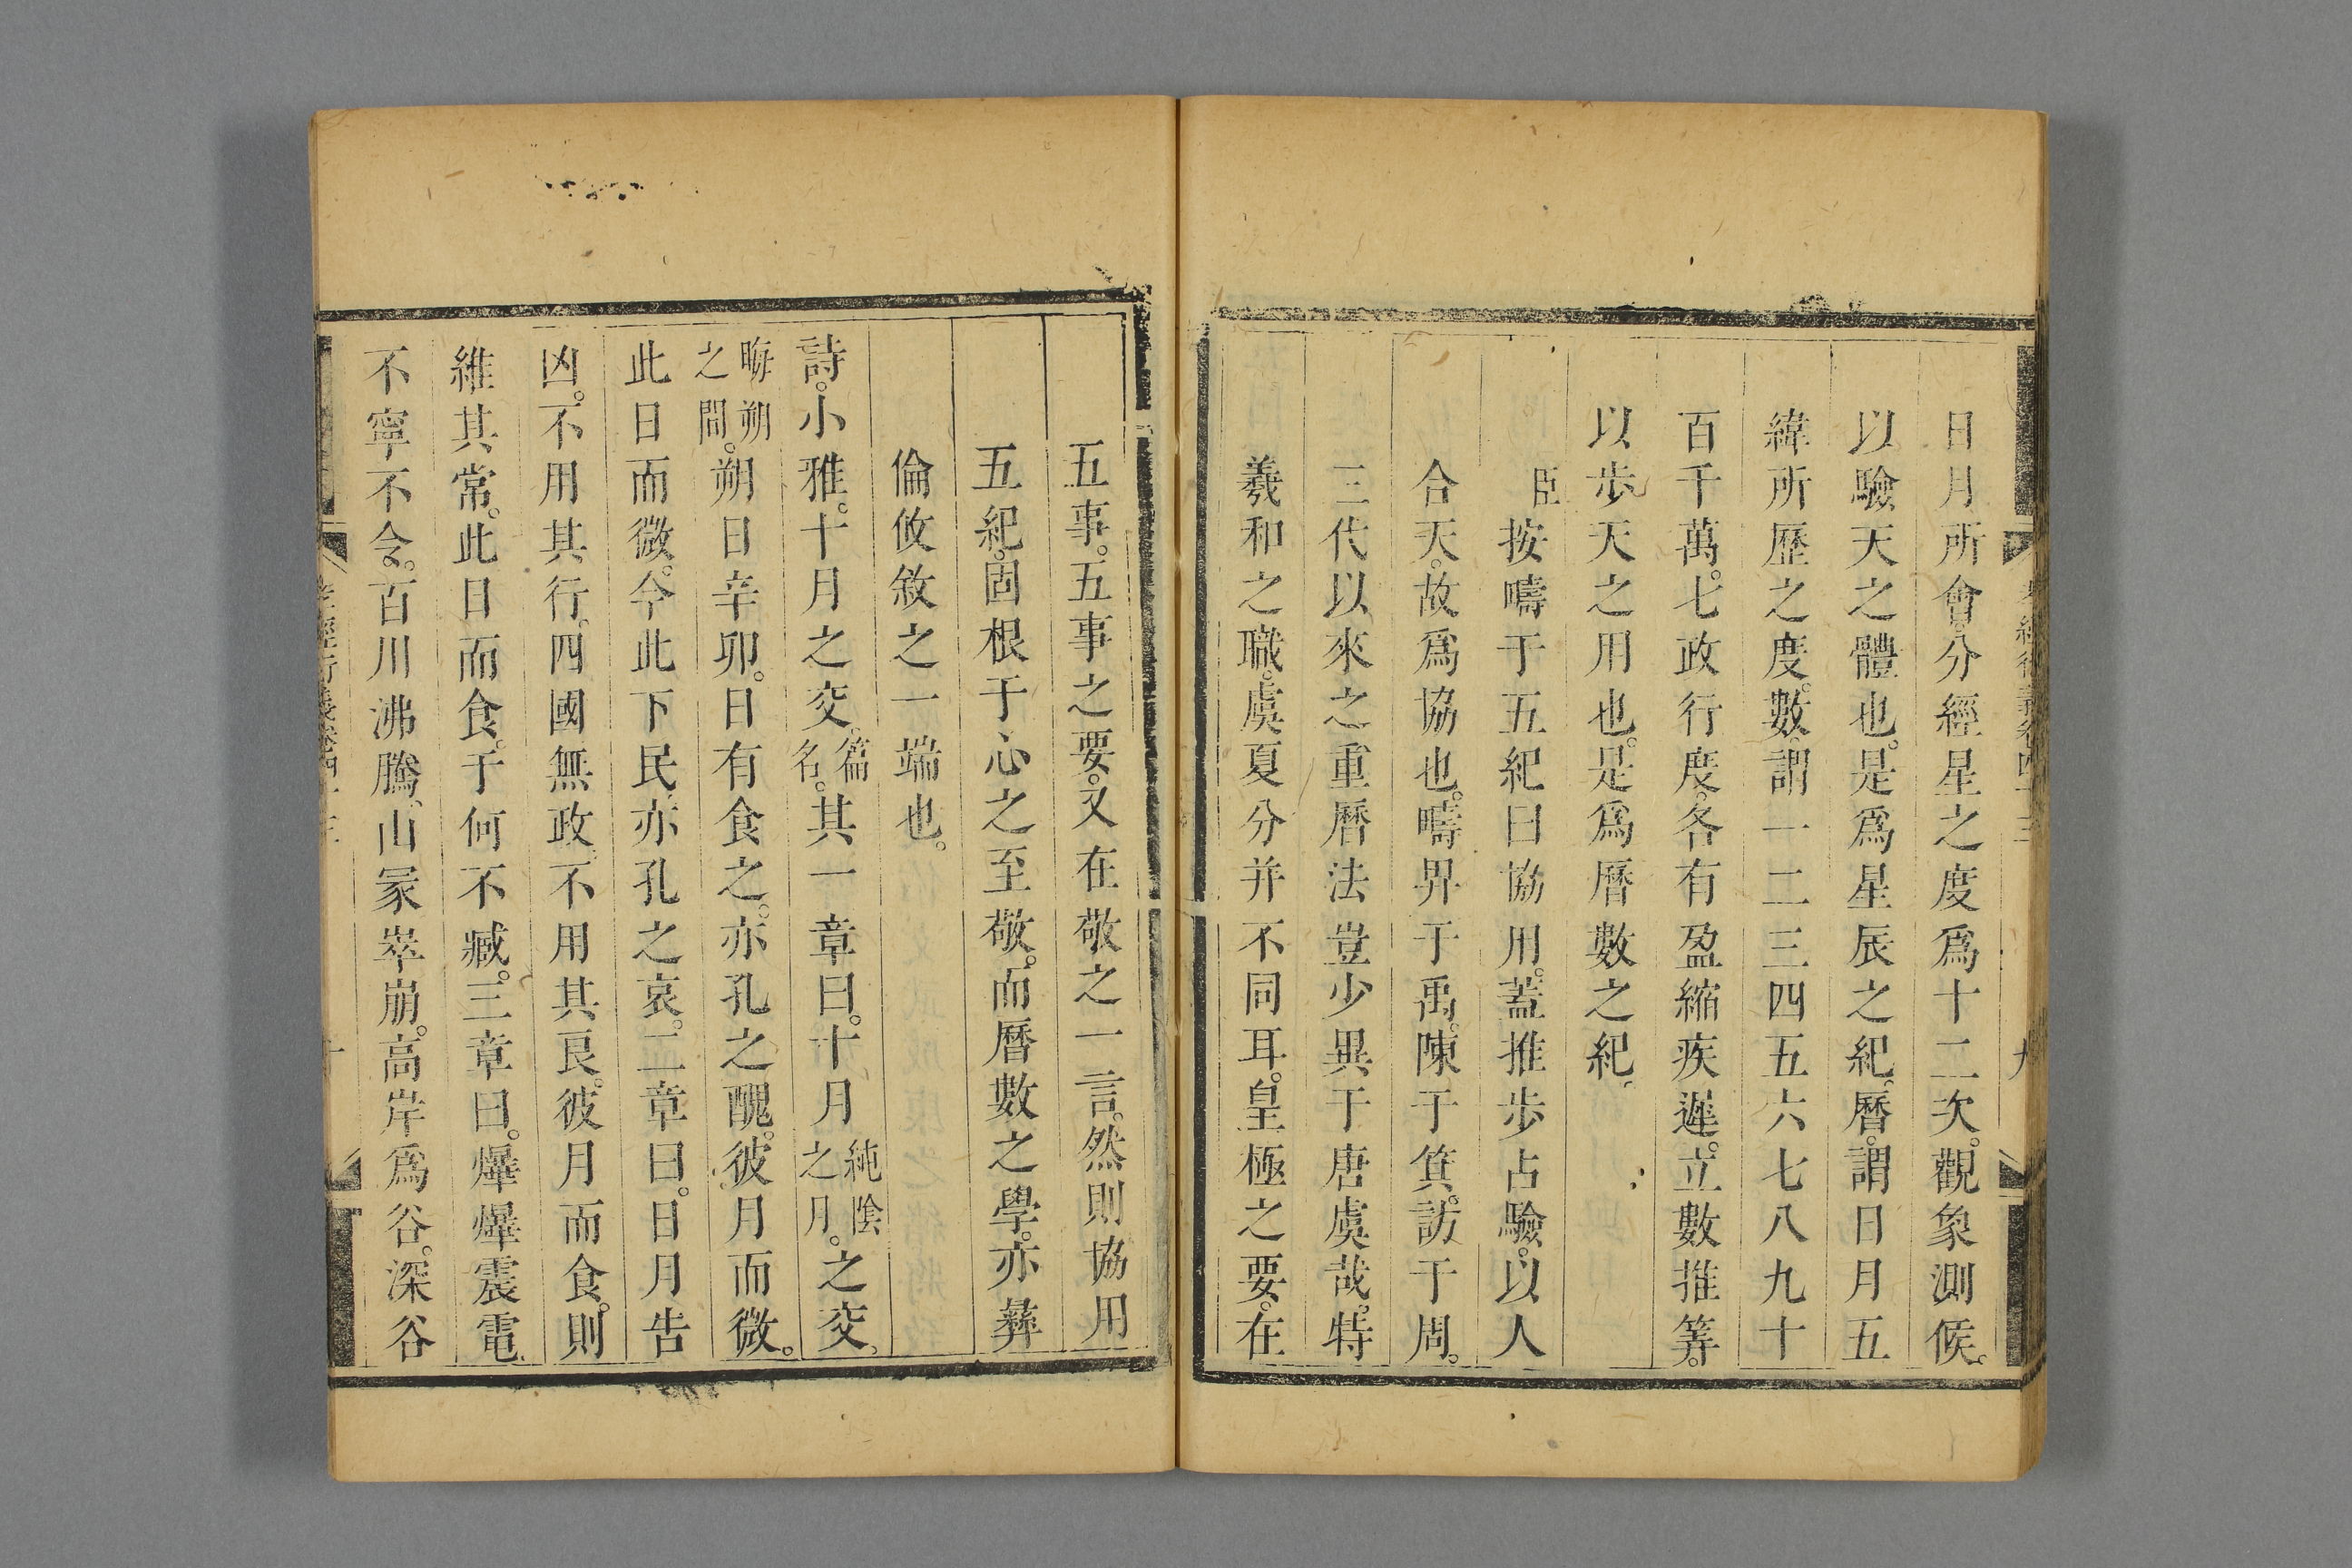 日月所會。分經星之度爲十二次。觀象測候。
以驗天之體也。是爲星辰之紀。曆。謂日月五
緯所歷之度。數。謂一二三四五六七八九十
百千萬。七政行度。各有盈縮疾遲。立數推筭。
以步天之用也。是爲曆數之紀。
臣按疇于五紀曰協用。蓋推步占驗。以人
合天。故爲協也。疇畀于禹。陳于箕。訪于周。
三代以來之重曆法豈少異于唐虞哉。特
羲和之職。虞夏分并不同耳。皇極之要。在
五事。五事之要。又在敬之一言。然則協用
五紀。固根于心之至敬。而曆數之學。亦彝
倫攸敘之一端也。
詩。小雅。十月之交。篇名。其一章曰。十月純陰之月。之交。
晦朔之間。朔日辛卯。日有食之。亦孔之醜。彼月而微。
此日而微。今此下民。亦孔之哀。二章曰。日月告
凶。不用其行。四國無政。不用其良。彼月而食。則
維其常。此日而食。于何不臧。三章曰。爗爗震電。
不寧不令。百川沸騰。山冢崒崩。高岸爲谷。深谷